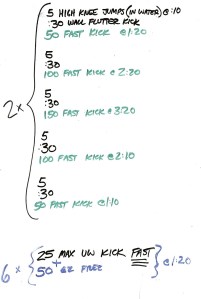 5 HIGH KNEE JUMPS (IN WATER) @ :10
:30 WALL FLUTTER KICK
50 FAST KICK @ 1:20
5
:30
100 FAST KICK @ 2:20
2x
5
:30
150 FAST KICK @ 3:20
5
:30
100 FAST KICK @ 2:10
5
:30
50 FAST KICK @ 1:10
25 MAX UW KICK FAST
6x
@ 1:20
50 EZ FREE